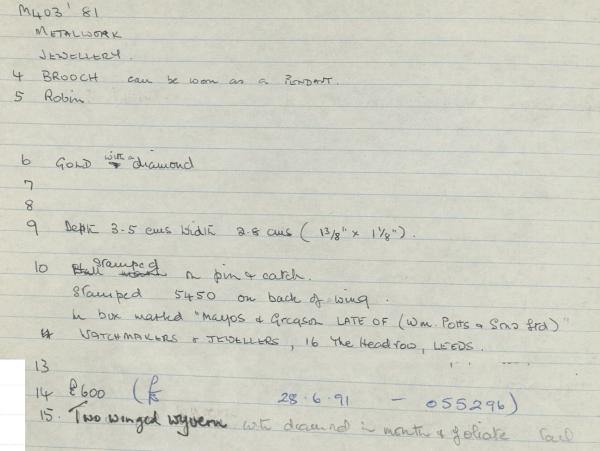 M403' 81
METALWORK
JEWELLERY.
4 BROOCH can be worn as a PENDANT.
5 Robin
6 GOLD with a diamond
7
8
9 Depth 3.5 cms Width 2.8 cms (1 3/8" x 1 1/8").
10 stamped on pin & catch.
Stamped 5450 on back of wing.
In box marked "Mayos & Gregson LATE OF (Wm. Potts & Sons Ltd)"
WATCHMAKERS & JEWELLERS, 16 The Headrow, LEEDS.
13
14 £600 ( 28.6.91 - 055296)
15. Two winged wyvern with diamond in mouth & foliate tail